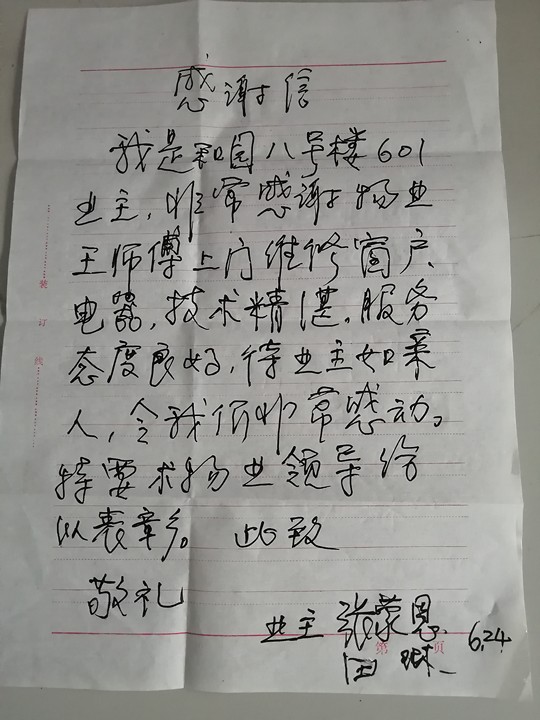 感谢信
我是和园八号楼601
业主，非常感谢物业
王师傅上门维修窗户
电器，技术精湛。服务
态度良好，待业主如亲
人，令我们非常感动。
特要求物业领导给
以表章彡。 此致
敬礼
业主 张蒙恩 6.24
田琳
第 页
装
订
线